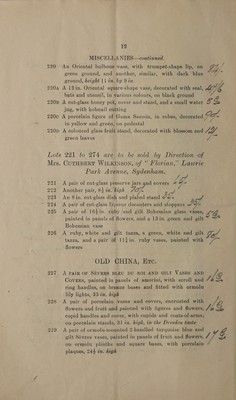 12
MISCELLANIES—continued.
220 An Oriental bulbous vase, with trumpet-shape lip, on
green ground, and another, similar, with dark blue
ground, height 11 in. by 9 in.
220A A 12 in. Oriental square-shape vase, decorated with seal,
bats and utensil, in various colours, on black ground
220B A cut-glass honey pot, cover and stand, and a small water
jug, with hobnail cutting
220C A porcelain figure of Gama Sennin, in robes, decorated
in yellow and green, on pedestal
220D A coloured glass fruit stand, decorated with blossom and
green leaves
Lots 221 to 274 are to be sold by Direction of
Mrs. CUTHBERT WILKINSON, of "Florian," Lawrie
Park Avenue, Sydenham.
221 A pair of cut-glass preserve jars and covers
222 Another pair, 8½ in. high
223 An 8 in. cut-glass dish and plated stand
224 A pair of cut-glass liqueur decanters and stoppers
225 A pair of 16½ in. ruby and gilt Bohemian glass vases,
painted in panels of flowers, and a 13 in. green and gilt
Bohemian vase
226 A ruby, white and gilt tazza, a green, white and gilt
tazza, and a pair of 11½ in. ruby vases, painted with
flowers
OLD CHINA, ETC.
227 A PAIR OF SÈVRES BLEU DU ROI AND GILT VASES AND
COVERS, painted in panels of amorini, with scroll and
ring handles, on bronze bases and fitted with ormolu
lily lights, 33 in. high
228 A pair of porcelain vases and covers, encrusted with
flowers and fruit and painted with figures and flowers,
cupid handles and cover, with cupids and coats-of-arms,
on porcelain stands, 31 in. high, in the Dresden taste
229 A pair of ormolu-mounted 2-handled turquoise blue and
gilt Sèvres vases, painted in panels of fruit and flowers,
on ormolu plinths and square bases, with porcelain
plaques, 24½ in. high